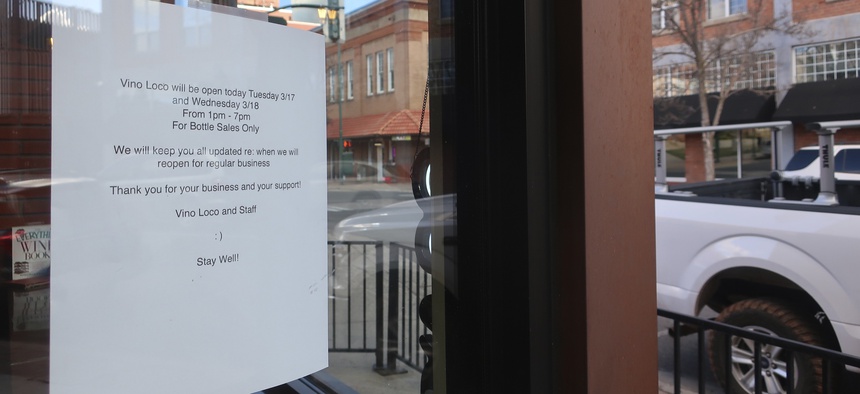 Vino Loco will be open today Tuesday 3/17
and Wednesday 3/18
From 1pm - 7pm
For Bottle Sales Only
We will keep you all updated re: when we will
reopen for regular business
Thank you for your business and your support!
Vino Loco and Staff
: )
Stay Well!
WINE
BOOK